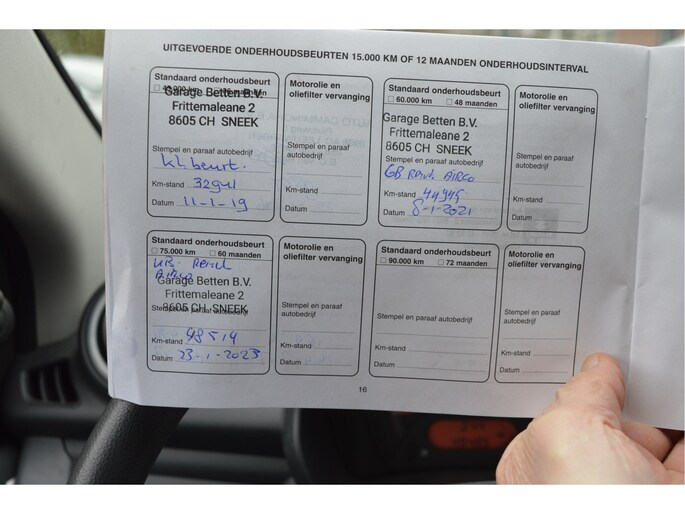 UITGEVOERDE ONDERHOUDSBEURTEN 15.000 KM OF 12 MAANDEN ONDERHOUDSINTERVAL
Standaard onderhoudsbeurt
Garage Betten B.V.
Frittemaleane 2
8605 CH SNEEK
Stempel en paraaf autobedrijf
kl beurt.
Km-stand
Datum 11-1-19
Motorolie en
oliefilter vervanging
Stempel en paraaf
autobedrijf
Km-stand
Datum
Standaard onderhoudsbeurt
60.000 km 48 maanden
Garage Betten B.V.
Frittemaleane 2
8605 CH SNEEK
Stempel en paraaf autobedrijf
GB Remvl AIRCO
Km-stand 44945
Datum 8-1-2021
Motorolie en
oliefilter vervanging
Stempel en paraaf
autobedrijf
Km-stand
Datum
Standaard onderhoudsbeurt
75.000 km 60 maanden
Garage Betten B.V.
Frittemaleane 2
Stempel en paraaf autobedrijf
8605 CH SNEEK
Km-stand 48514
Datum 23-1-2023
Motorolie en
oliefilter vervanging
Stempel en paraaf
autobedrijf
Km-stand
Datum
Standaard onderhoudsbeurt
90.000 km 72 maanden
Stempel en paraaf autobedrijf
Km-stand
Datum
Motorolie en
oliefilter vervanging
Stempel en paraaf
autobedrijf
Km-stand
Datum
16